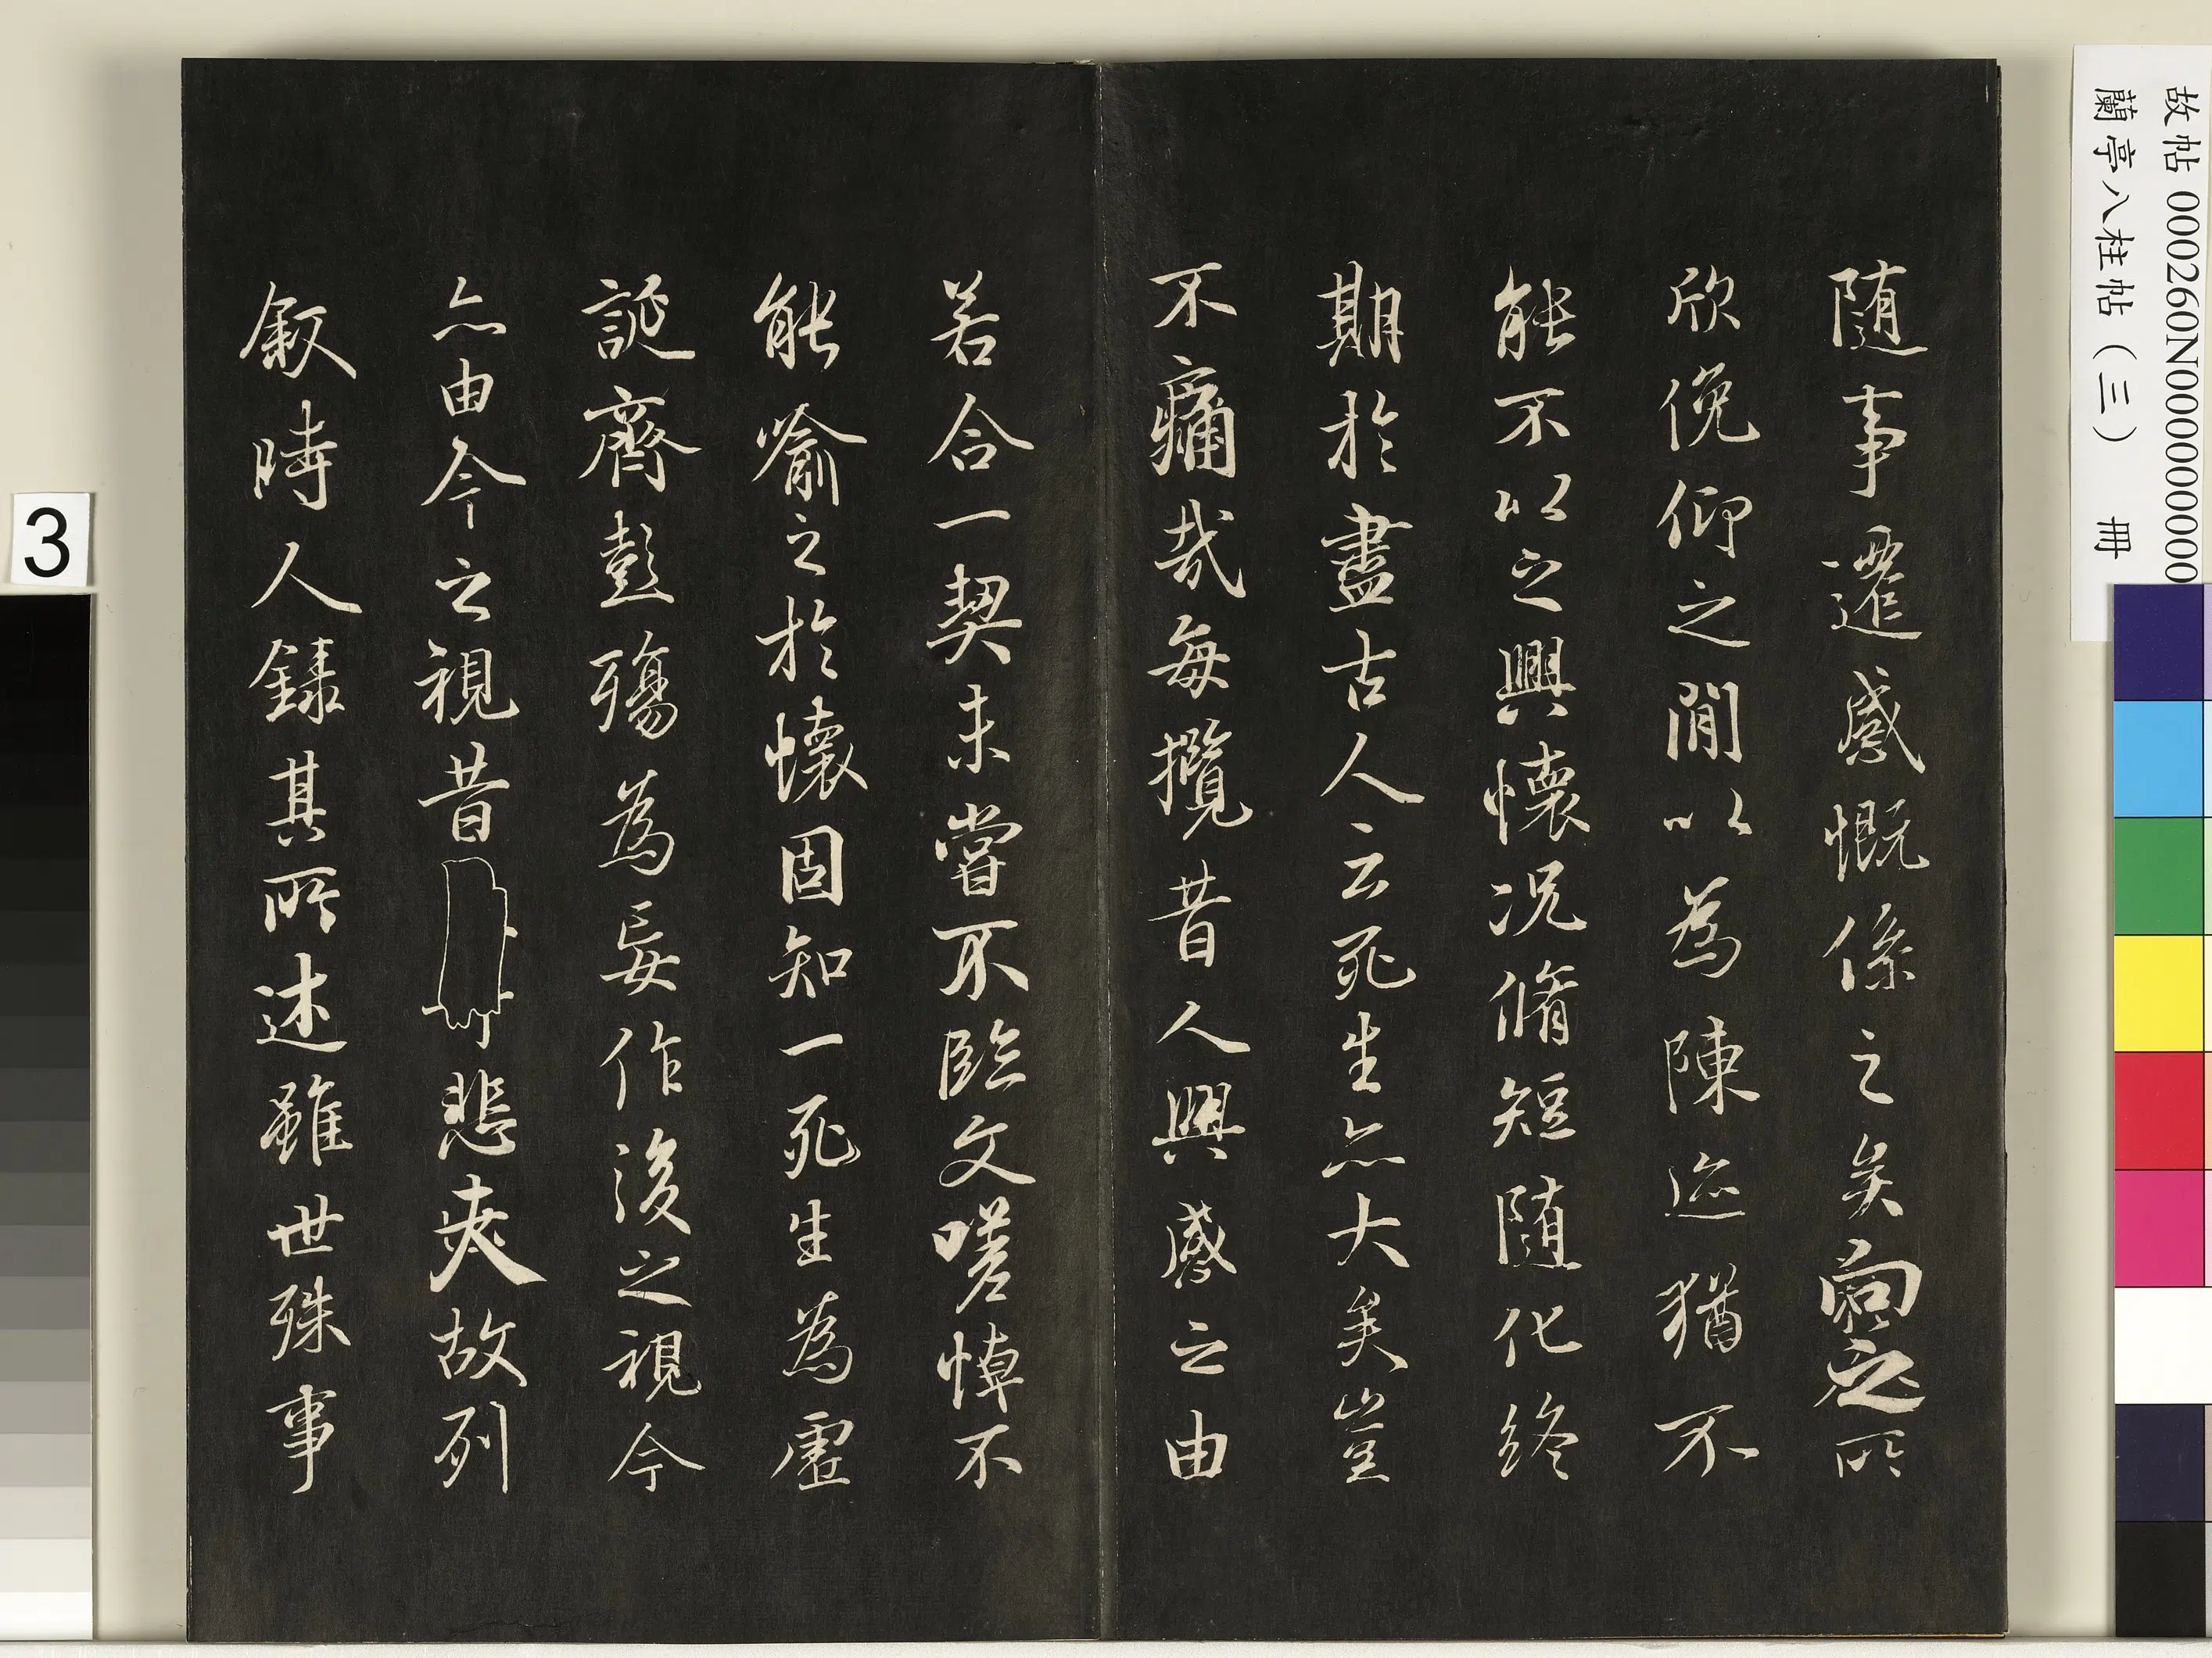 随事遷感慨係之矣向之所
欣俛仰之閒以為陳迹猶不
能不以之興懷況脩短随化終
期於盡古人云死生亦大矣豈
不痛哉每攬昔人興感之由
若合一契未嘗不臨文嗟悼不
能喻之於懷固知一死生為虛
誕齊彭殤為妄作後之視今
亦由今之視昔悲夫故列
叙時人錄其所述雖世殊事
故帖000260N000000000
蘭亭八柱帖（三） 冊
3